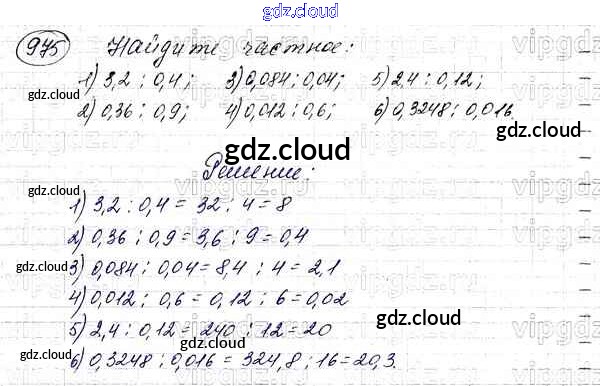 gdz.cloud
975 Найдите частное:
1) 3,2 : 0,4; 3) 0,084 : 0,04; 5) 2,4 : 0,12;
gdz.cloud
2) 0,36 : 0,9; 4) 0,012 : 0,6; 6) 0,3248 : 0,016.
gdz.cloud
gdz.cloud
Решение:
gdz.cloud
1) 3,2 : 0,4 = 32 : 4 = 8
2) 0,36 : 0,9 = 3,6 : 9 = 0,4
gdz.cloud
3) 0,084 : 0,04 = 8,4 : 4 = 2,1
4) 0,012 : 0,6 = 0,12 : 6 = 0,02
gdz.cloud
5) 2,4 : 0,12 = 240 : 12 = 20
gdz.cloud
gdz.cloud
6) 0,3248 : 0,016 = 324,8 : 16 = 20,3.